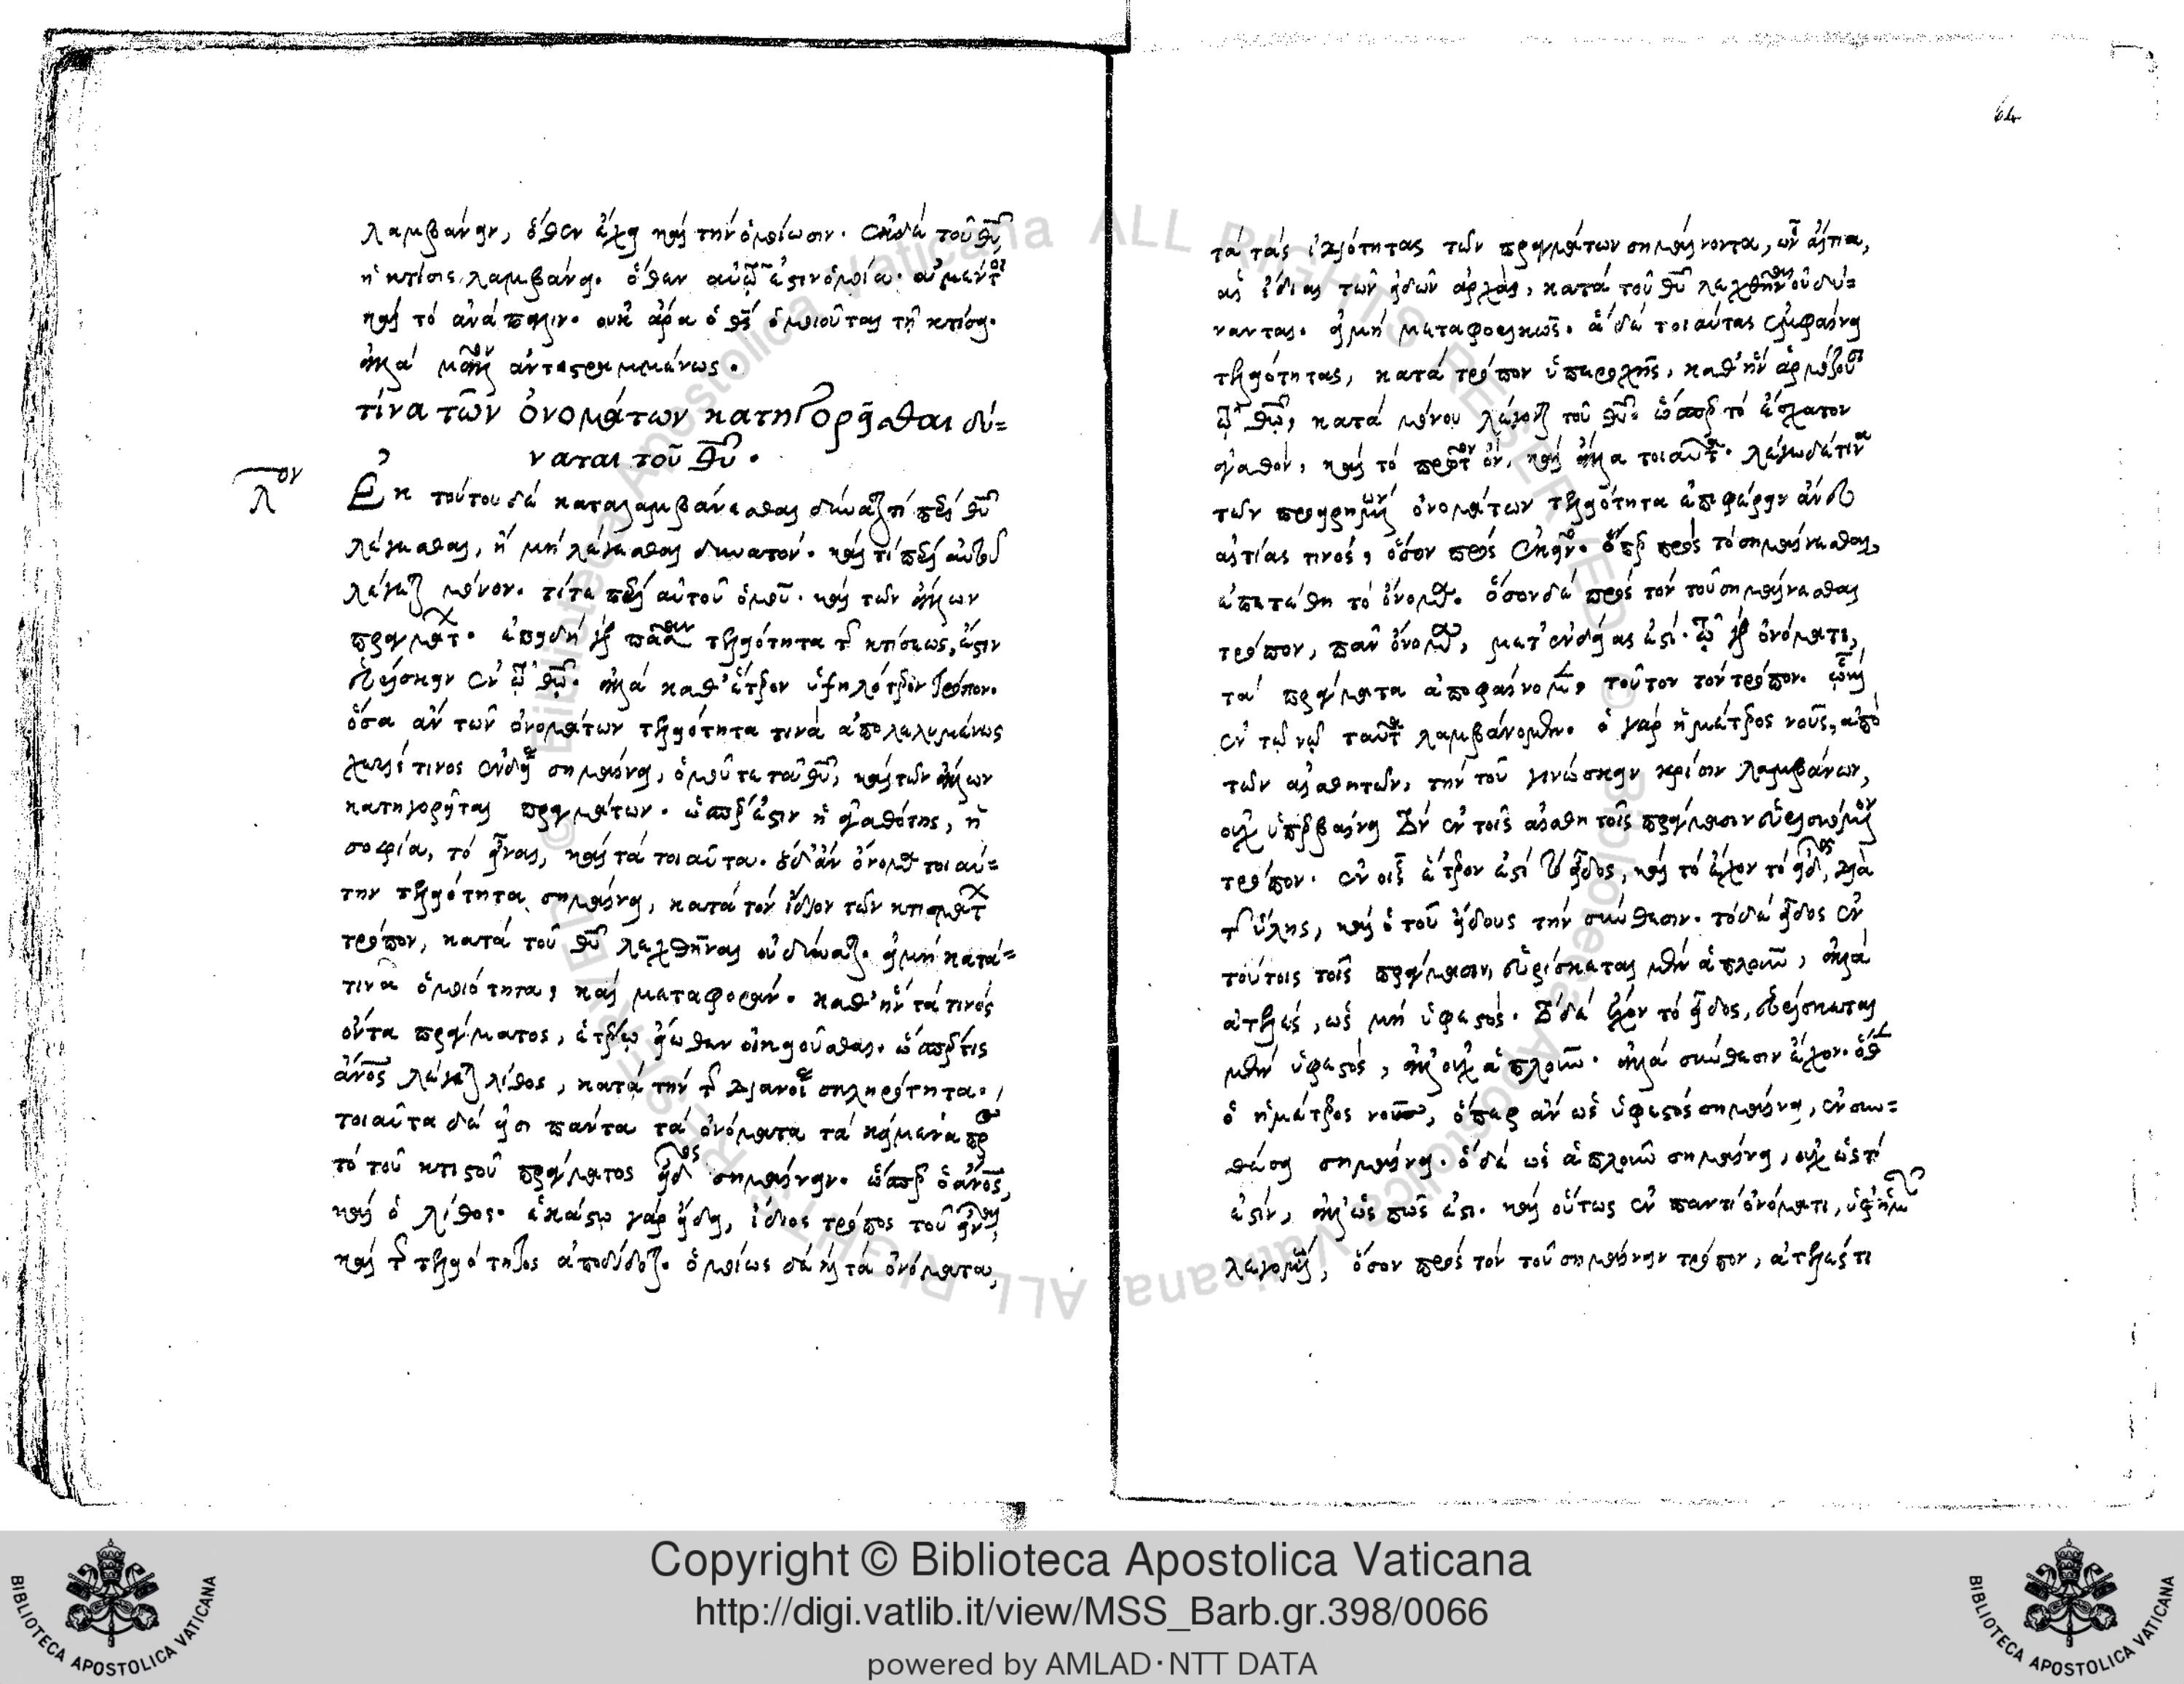 λαμβάνειν, ὅθεν ἔχει καὶ τὴν ὁμοίωσιν. ἐκ δὲ τοῦ θῦ
ἡ κτίσις λαμβάνει. ὅθεν αὐτῷ ἐστιν ὁμοία.
καὶ τὸ ἀνάπαλιν. οὐκ ἄρα ὁ θς ὁμοιοῦται τῇ κτίσει.
ἀλλὰ μᾶλλον ἀντεστραμμένως.
τίνα τῶν ὀνομάτων κατηγορεῖσθαι δύ=
ναται τοῦ θῦ.
λον
Ἐκ τούτου δὲ καταλαμβάνεσθαι δύναται τί περὶ θῦ
λέγεσθαι, ἢ μὴ λέγεσθαι δυνατόν. καὶ τί περὶ αὐτοῦ
λέγεται μόνον. τί τε περὶ αὐτοῦ ὁμοῦ. καὶ τῶν ἄλλων
πραγμάτ. ἐπειδὴ γὰρ πᾶσαν τελειότητα τῆς κτίσεως, ἔστιν
εὑρίσκειν ἐν τῷ θῷ. ἀλλὰ καθ' ἕτερον ὑψηλότερον τρόπον.
ὅσα ἂν τῶν ὀνομάτων τελειότητα τινὰ ἀπολελυμένως
χωρίς τινος ἐνδεί σημαίνει, ὁμοῦ τε τοῦ θῦ, καὶ τῶν ἄλλων
κατηγορεῖται πραγμάτων. ὥσπερ ἐστὶν ἡ ἀγαθότης, ἡ
σοφία, τὸ εἶναι, καὶ τὰ τοιαῦτα. ὃ δ' ἂν ὄνομα τοιαύ=
την τελειότητα σημαίνει, κατὰ τὸν ἴδιον τῶν κτισμάτ
τρόπον, κατὰ τοῦ θῦ λεχθῆναι οὐ δύναται. εἰμὴ κατά=
τινα ὁμοιότητα, καὶ μεταφοράν. καθ' ἣν τὰ τινὸς
ὄντα πράγματος, ἑτέρῳ εἴωθεν οἰκειοῦσθαι. ὥσπέρ τις
ἄνος λέγεται λίθος, κατὰ τὴν τῆς διανοί σκληρότητα.
τοιαῦτα δέ εἰσι πάντα τὰ ὀνόματα τὰ κείμενα πρ
τὸ τοῦ κτιστοῦ πράγματος εἶδος σημαίνειν. ὥσπερ ὁ ἄνος,
καὶ ὁ λίθος. ἑκάστῳ γὰρ εἴδει, ἴδιος τρόπος τοῦ εἶναι,
καὶ τῆς τελειότητος ἀποδίδοται. ὁμοίως δὲ καὶ τὰ ὀνόματα,
τὰ τὰς ἰδιότητας τῶν πραγμάτων σημαίνοντα, ὧν αἴτια,
αἱ ἴδιαι τῶν εἰδῶν ἀρχαί, κατὰ τοῦ θῦ λεχθῆναι οὐ δύ=
νανται. εἰμὴ μεταφορικῶς. ἃ δὲ τοιαύτας ἐμφαίνει
τελειότητας, κατὰ τρόπον ὑπεροχῆς, καθ' ἣν ἁρμόζουσι
τῷ θῷ, κατὰ μόνου λέγονται τοῦ θῦ. ὥσπερ τὸ ἔσχατον
ἀγαθόν, καὶ τὸ πρῶτον ὄν, καὶ ἄλλα τοιαῦτα. λέγω δέ τινα
τῶν προειρημένων ὀνομάτων τελειότητα ἐπιφέρειν ἄνευ
αἰτίας τινός, ὅσον πρὸς ἐκεῖνο. ὅπερ πρὸς τὸ σημαίνεσθαι,
ἐπετέθη τὸ ὄνομα. ὅσον δὲ πρὸς τὸν τοῦ σημαίνεσθαι
τρόπον, πᾶν ὄνομα, μετ' ἐνδείας ἐστί. τῷ γὰρ ὀνόματι,
τὰ πράγματα ἀποφαίνομεν, τοῦτον τὸν τρόπον.
ἐν τῷ νῷ ταῦτα λαμβάνομεν. ὁ γὰρ ἡμέτερος νοῦς, ἀπὸ
τῶν αἰσθητῶν, τὴν τοῦ γινώσκειν κρίσιν λαμβάνων,
οὐχ ὑπερβαίνει τὸν ἐν τοῖς αἰσθη τοῖς πράγμασιν εὑρισκόμενον
τρόπον. ἐν οἷς ἕτερον ἐστὶ τὸ εἶδος, καὶ τὸ ἔχον τὸ εἶδος, διὰ
τῆς ὕλης, καὶ ὁ τοῦ εἴδους τὴν σύνθεσιν. τὸ δὲ εἶδος ἐν
τούτοις τοῖς πράγμασιν, εὑρίσκεται μὲν ἁπλοῦν, ἀλλὰ
ἀτελές, ὡς μὴ ὑφεστός. τὸ δὲ ἔχον τὸ εἶδος, εὑρίσκεται
μὲν ὑφεστός, ἀλλ' οὐχ ἁπλοῦν. ἀλλὰ σύνθεσιν ἔχον. ὅθεν
ὁ ἡμέτερος νοῦς, ὅπερ ἂν ὡς ὑφεστὸς σημαίνει, ἐν συν=
θέσει σημαίνει. ὃ δὲ ὡς ἁπλοῦν σημαίνει, οὐχ ὡς τί
ἐστιν, ἀλλ' ὡς πῶς ἐστι. καὶ οὕτως ἐν παντὶ ὀνόματι, ὑφ' ἡμῶν
λεγομένῳ, ὅσον πρὸς τὸν τοῦ σημαίνειν τρόπον, ἀτελές τι
Copyright © Biblioteca Apostolica Vaticana
http://digi.vatlib.it/view/MSS_Barb.gr.398/0066
powered by AMLAD·NTT DATA
BIBLIOTECA APOSTOLICA VATICANA
BIBLIOTECA APOSTOLICA VATICANA